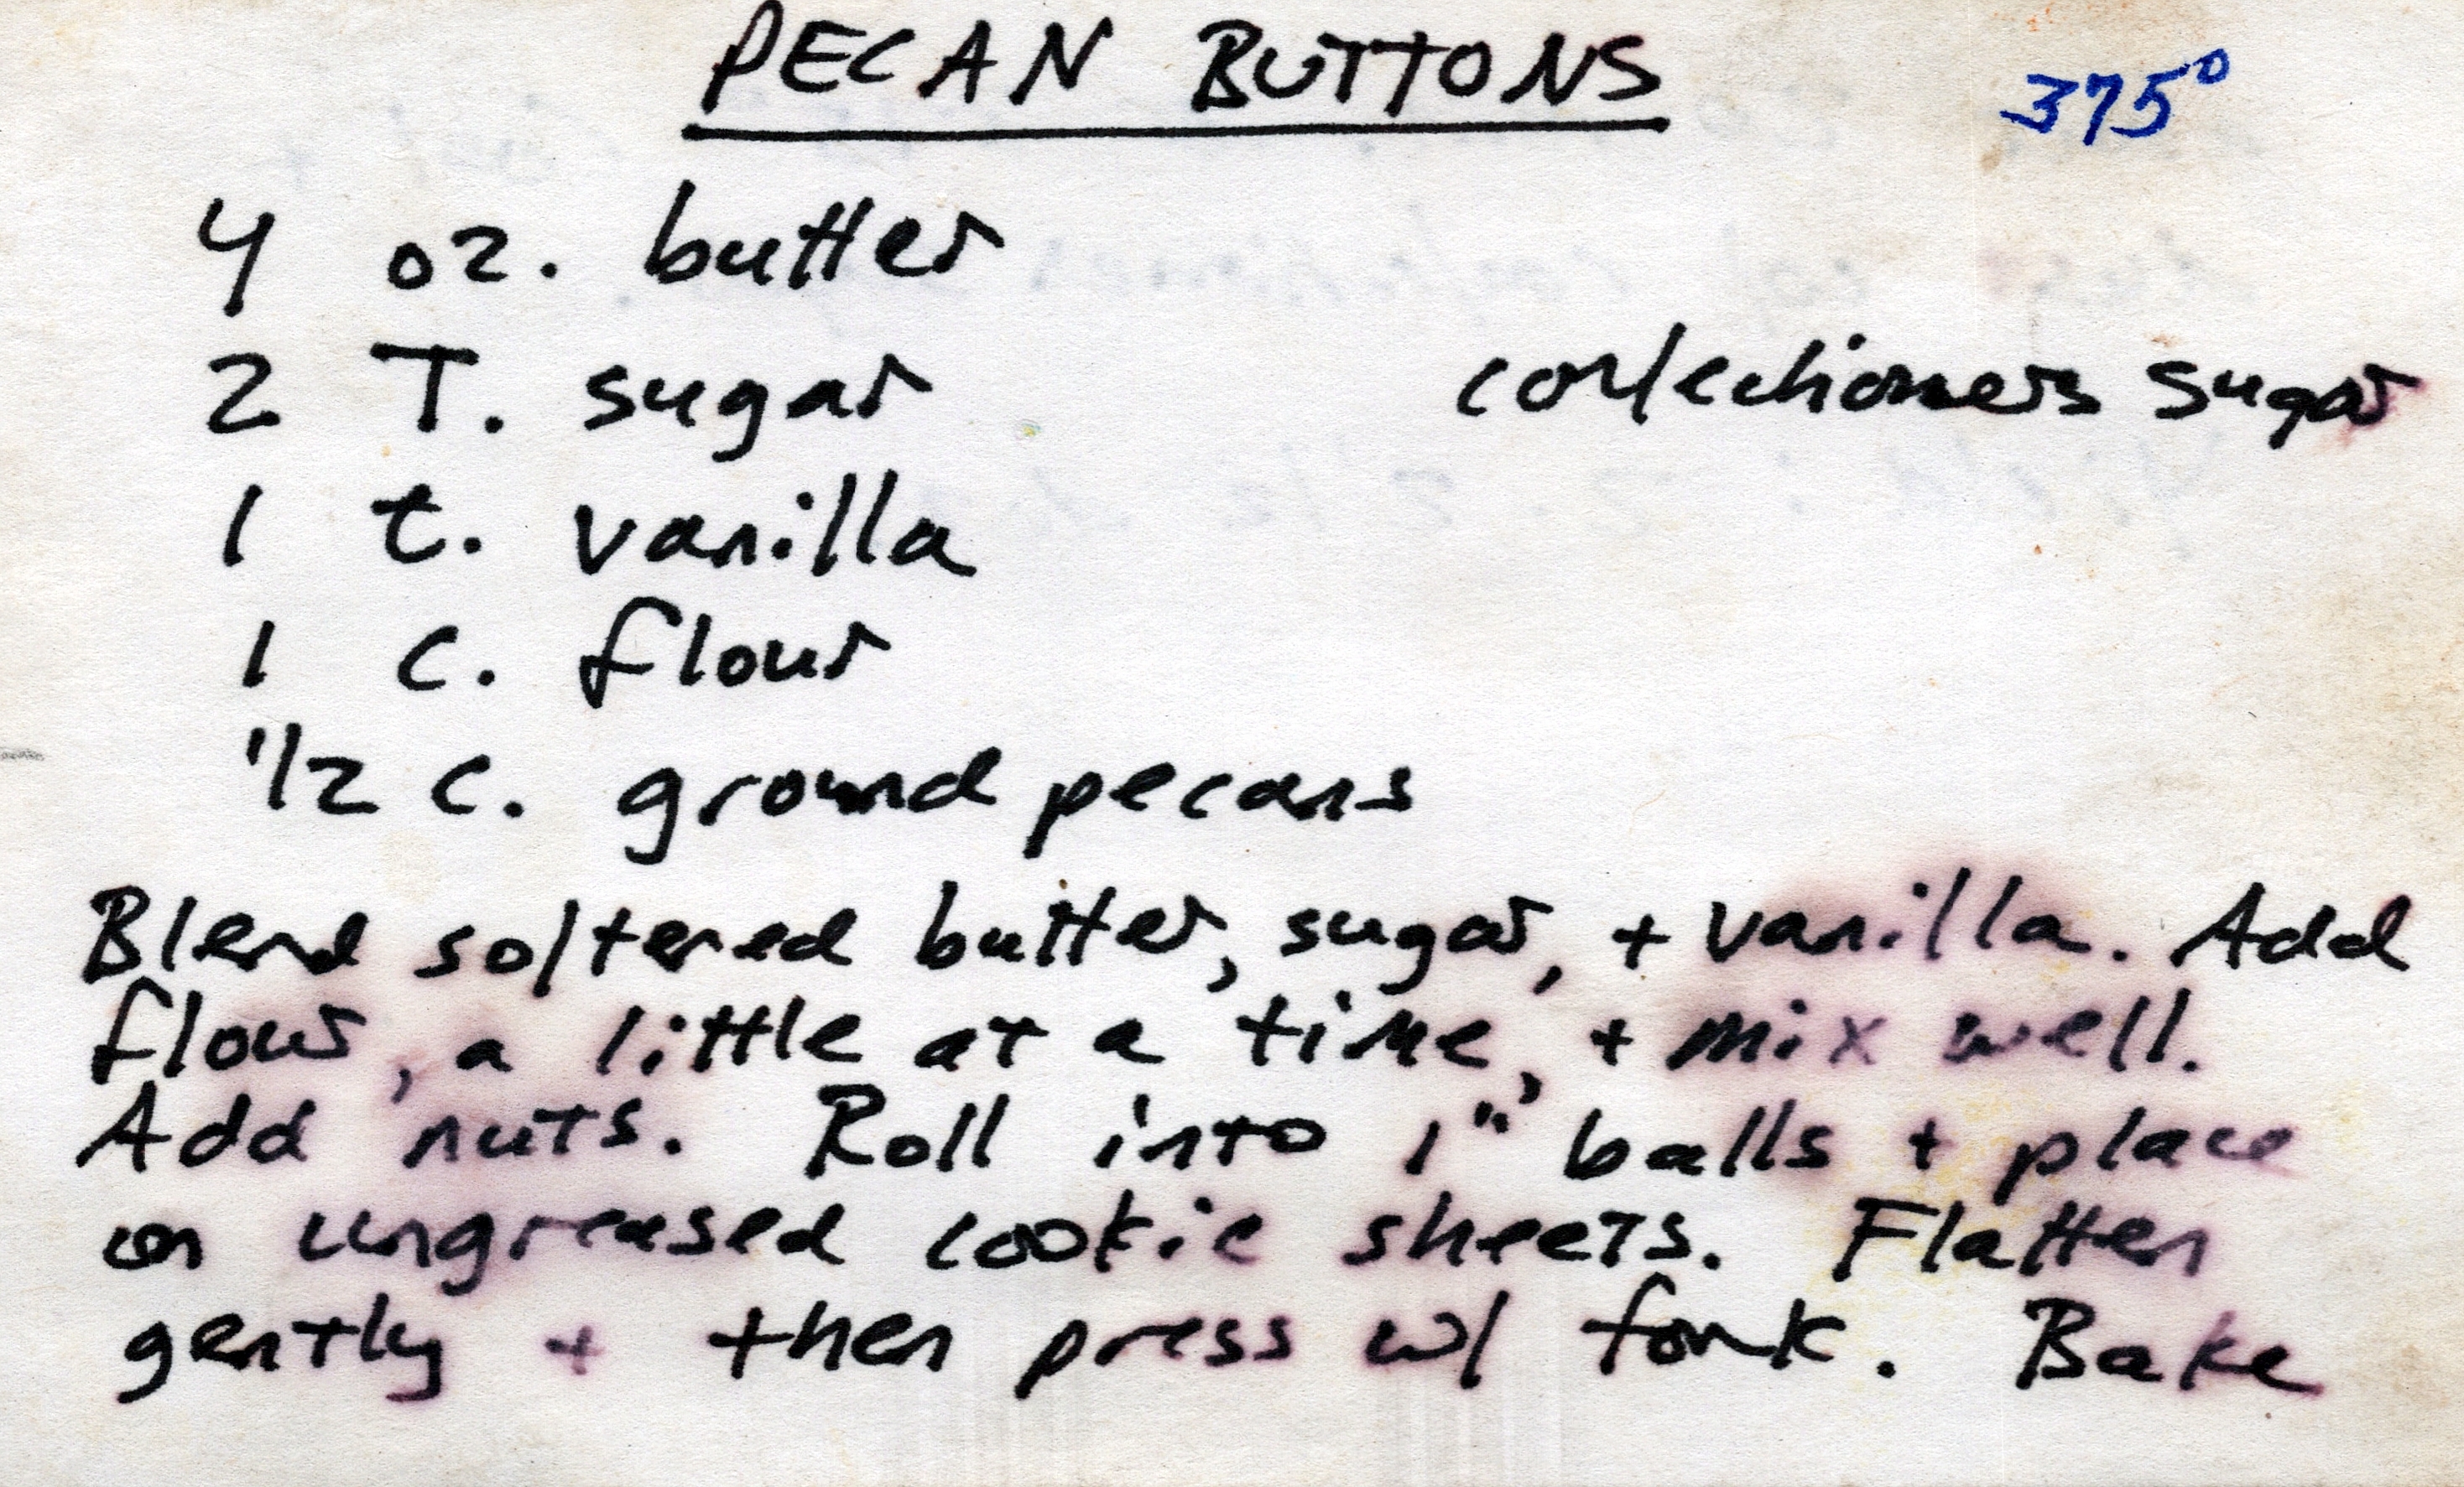 PECAN BUTTONS 375°
4 oz. butter
2 T. sugar confectioners sugar
1 t. vanilla
1 c. flour
1/2 c. ground pecans
Blend softened butter, sugar, + vanilla. Add
flour, a little at a time, + mix well.
Add nuts. Roll into 1" balls + place
on ungreased cookie sheets. Flatten
gently + then press w/ fork. Bake